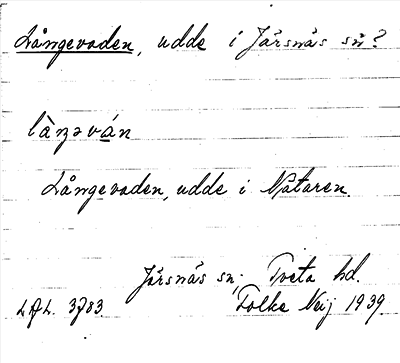 Långevaden, udde i Järsnäs sn?
làŋəván
Långevaden, udde i Nätaren.
Järsnäs sn, Tveta hd.
LAL. 3783. Folke Neij 1939.